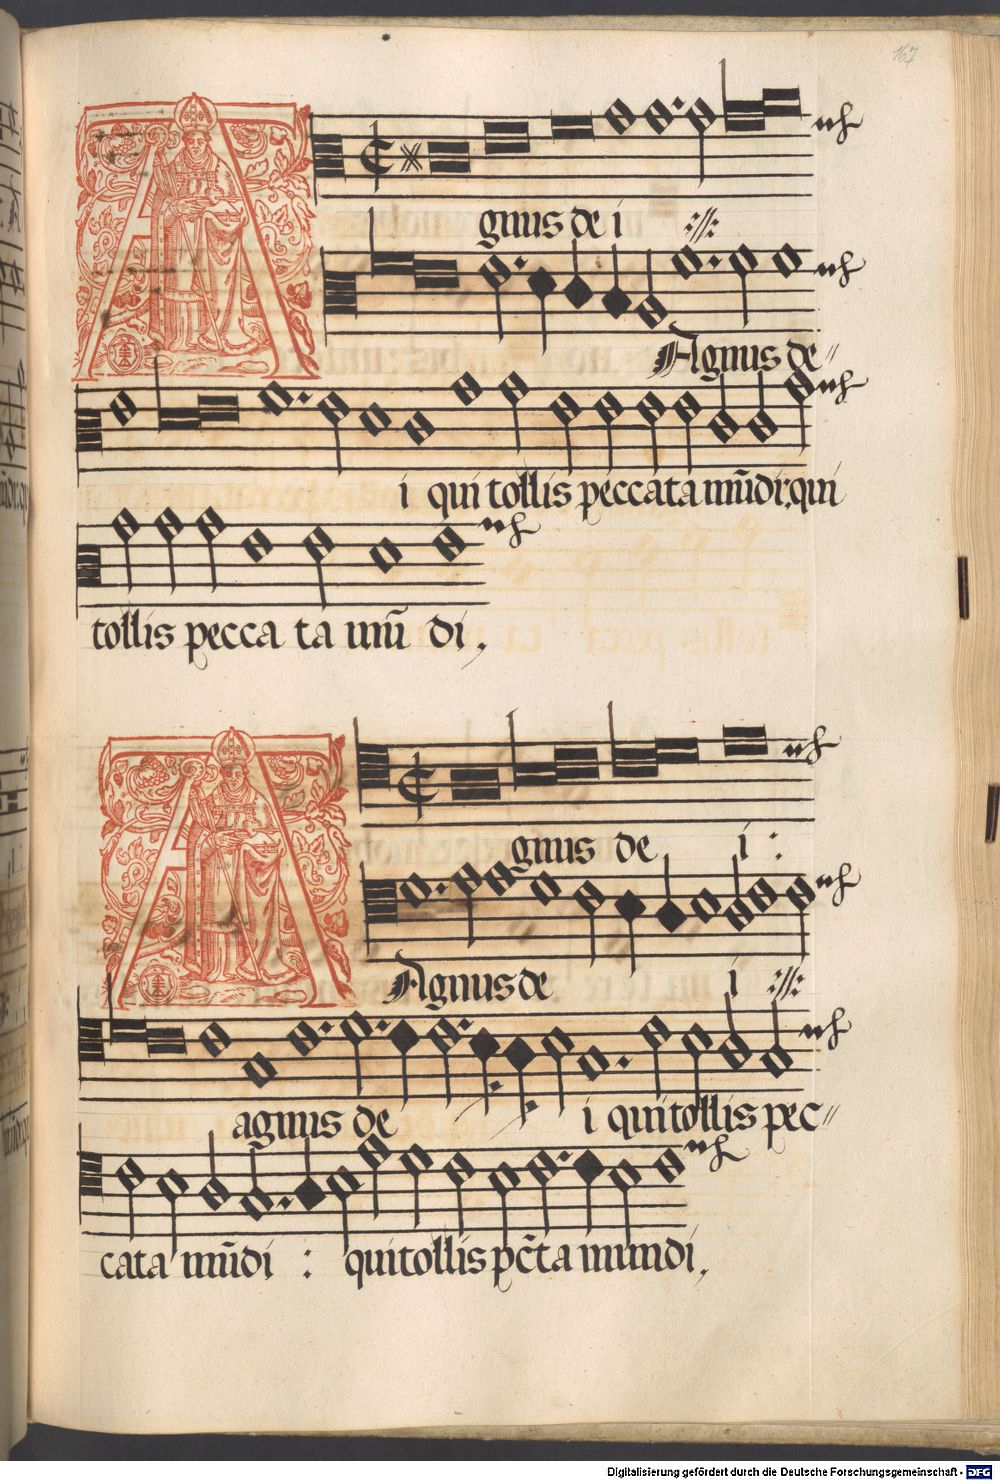 167
Agnus dei
Agnus de
i qui tollis peccata mũdi, qui
tollis pecca ta mũ di,
Agnus de i :
Agnus de i
agnus de i qui tollis pec
cata mũdi : qui tollis pc̃ta mundi,
Digitalisierung gefördert durch die Deutsche Forschungsgemeinschaft - DFG